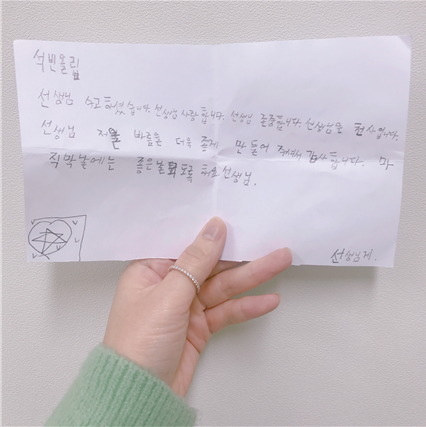 석빈올림
선생님 수고하셨습니다. 선생님 사랑합니다. 선생님 존중합니다 선생님은 천사입니다.
선생님 저를 바름을 더욱 좋게 만들어 주셔서 감사합니다. 마
직막날에는 좋은날 되도록 하요 선생님.
선생님게.